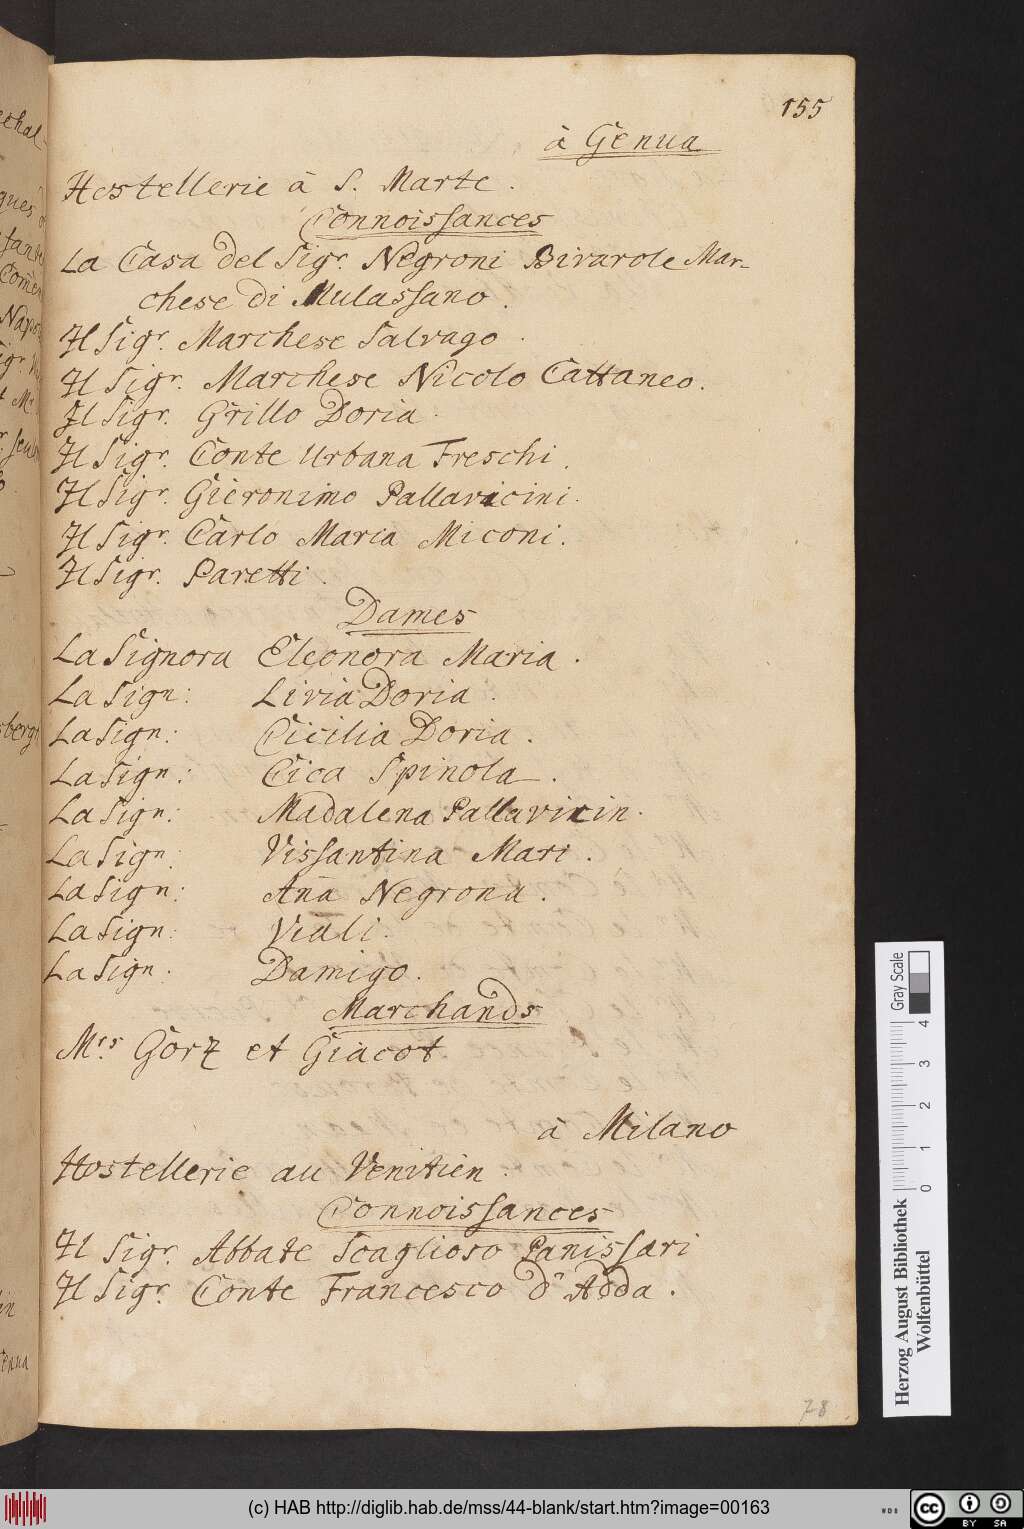 155
à Genua
Hostellerie à S. Marte.
Connoissances
La Casa del Sigr. Negroni Birarole Mar-
chese di Mulassano.
Il Sigr. Marchese Salvago.
Il Sigr. Marchese Nicolo Cattaneo.
Il Sigr. Grillo Doria.
Il Sigr. Conte Urbana Freschi.
Il Sigr. Gieronimo Pallavicini.
Il Sigr. Carlo Maria Miconi.
Il Sigr. Paretti.
Dames
La Signora Eleonora Maria.
La Sign: Livia Doria.
La Sign: Cicilia Doria.
La Sign: Cica Spinola.
La Sign: Madalena Pallavicin.
La Sign: Vissantina Mari.
La Sign: Aña Negrona.
La Sign: Viali.
La Sign. Damigo.
Marchands
Mrs. Gorz et Giacot
à Milano
Hostellerie au Venitien.
Connoissances
Il Sigr. Abbate Scaglioso Panissari
Il Sigr. Conte Francesco d'Adda.
78
Herzog August Bibliothek
Wolfenbüttel
Gray Scale
0 1 2 3 4
(c) HAB http://diglib.hab.de/mss/44-blank/start.htm?image=00163
WDB
cc BY SA